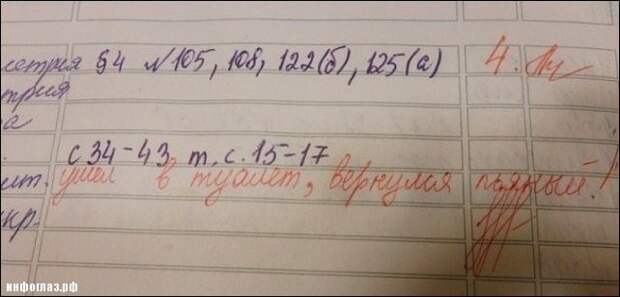 етрия §4 №105, 108, 122(б), 125(а) 4.
трия
а
с 34-43 т. с. 15-17
ит. ушел в туалет, вернулся пьяный!
кр.
инфоглаз.рф